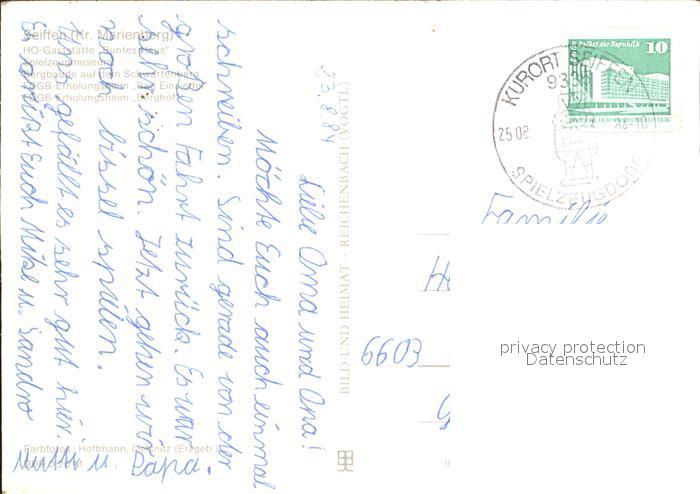 Seiffen (Kr. Marienberg)
HO-Gaststätte "Buntes Haus"
Spielzeugmuseum
Bergbäude auf dem Schwartenberg
FDGB-Erholungsheim "Bad Einsiedel"
FDGB-Erholungsheim "Berghof"
23.8.84
Liebe Oma und Opa!
Möchte Euch auch einmal
schreiben. Sind gerade von der
großen Fahrt zurück. Es war
sehr schön. Jetzt gehen wir
noch bissel spielen.
Uns gefällt es sehr gut hier.
Es grüßt Euch Mike u. Sandro
Mutti u. Papa.
Farbfotos: Hoffmann, (Erzgeb.)
BILD UND HEIMAT · REICHENBACH (VOGTL)
Palast der Republik
10
DEUTSCHE DEMOKRATISCHE REPUBLIK
KURORT SEIFFEN
9335
25.08
SPIELZEUGDORF
Familie
6603
privacy protection
Datenschutz